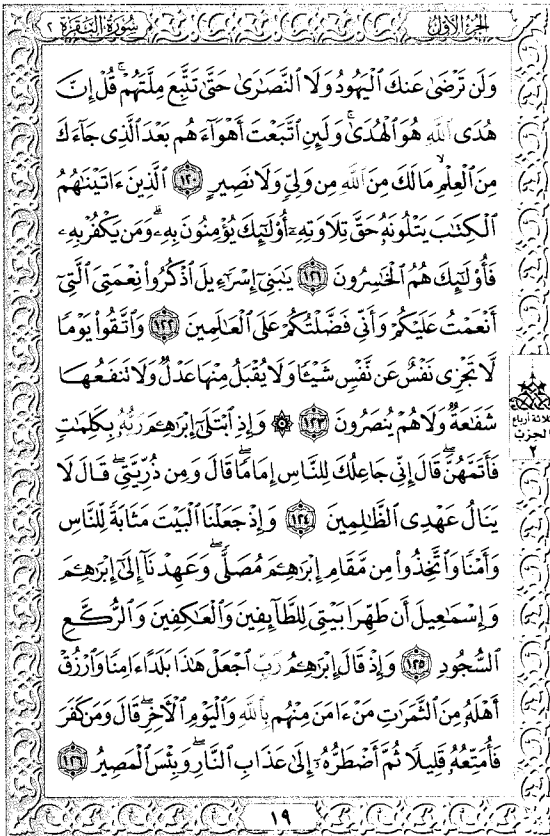 الجزء الأول
سورة البقرة ٢
وَلَن تَرْضَىٰ عَنكَ الْيَهُودُ وَلَا النَّصَارَىٰ حَتَّىٰ تَتَّبِعَ مِلَّتَهُمْ ۗ قُلْ إِنَّ
هُدَى اللَّهِ هُوَ الْهُدَىٰ ۗ وَلَئِنِ اتَّبَعْتَ أَهْوَاءَهُم بَعْدَ الَّذِي جَاءَكَ
مِنَ الْعِلْمِ ۙ مَا لَكَ مِنَ اللَّهِ مِن وَلِيٍّ وَلَا نَصِيرٍ ١٢٠ الَّذِينَ ءَاتَيْنَٰهُمُ
الْكِتَٰبَ يَتْلُونَهُۥ حَقَّ تِلَاوَتِهِۦٓ أُو۟لَٰٓئِكَ يُؤْمِنُونَ بِهِۦ ۗ وَمَن يَكْفُرْ بِهِۦ
فَأُو۟لَٰٓئِكَ هُمُ الْخَٰسِرُونَ ١٢١ يَٰبَنِىٓ إِسْرَٰٓءِيلَ اذْكُرُوا۟ نِعْمَتِىَ الَّتِىٓ
أَنْعَمْتُ عَلَيْكُمْ وَأَنِّى فَضَّلْتُكُمْ عَلَى الْعَٰلَمِينَ ١٢٢ وَاتَّقُوا۟ يَوْمًا
لَّا تَجْزِى نَفْسٌ عَن نَّفْسٍ شَيْـًٔا وَلَا يُقْبَلُ مِنْهَا عَدْلٌ وَلَا تَنفَعُهَا
شَفَٰعَةٌ وَلَا هُمْ يُنصَرُونَ ١٢٣ ۞ وَإِذِ ابْتَلَىٰٓ إِبْرَٰهِۦمَ رَبُّهُۥ بِكَلِمَٰتٍ
فَأَتَمَّهُنَّ ۖ قَالَ إِنِّى جَاعِلُكَ لِلنَّاسِ إِمَامًا ۖ قَالَ وَمِن ذُرِّيَّتِى ۖ قَالَ لَا
يَنَالُ عَهْدِى الظَّٰلِمِينَ ١٢٤ وَإِذْ جَعَلْنَا الْبَيْتَ مَثَابَةً لِّلنَّاسِ
وَأَمْنًا وَاتَّخِذُوا۟ مِن مَّقَامِ إِبْرَٰهِۦمَ مُصَلًّى ۖ وَعَهِدْنَآ إِلَىٰٓ إِبْرَٰهِۦمَ
وَإِسْمَٰعِيلَ أَن طَهِّرَا بَيْتِىَ لِلطَّآئِفِينَ وَالْعَٰكِفِينَ وَالرُّكَّعِ
السُّجُودِ ١٢٥ وَإِذْ قَالَ إِبْرَٰهِۦمُ رَبِّ اجْعَلْ هَٰذَا بَلَدًا ءَامِنًا وَارْزُقْ
أَهْلَهُۥ مِنَ الثَّمَرَٰتِ مَنْ ءَامَنَ مِنْهُم بِاللَّهِ وَالْيَوْمِ الْءَاخِرِ ۖ قَالَ وَمَن كَفَرَ
فَأُمَتِّعُهُۥ قَلِيلًا ثُمَّ أَضْطَرُّهُۥٓ إِلَىٰ عَذَابِ النَّارِ ۖ وَبِئْسَ الْمَصِيرُ ١٢٦
ثلاثة أرباع
الحزب
٢
١٩